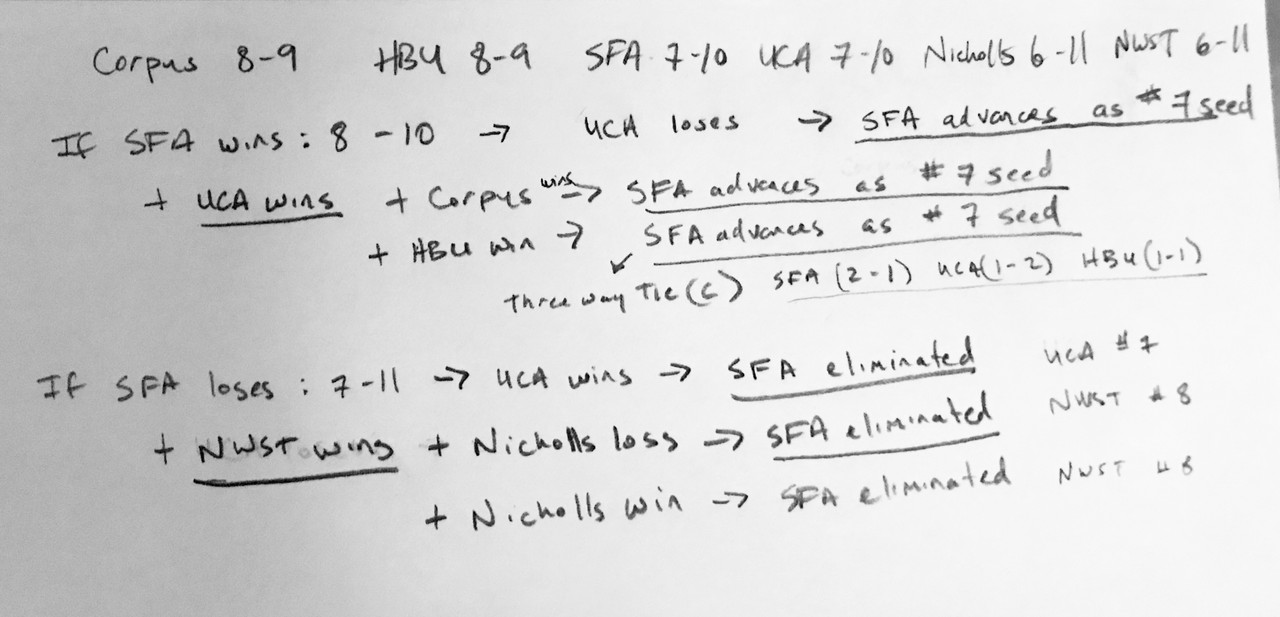 Corpus 8-9 HBU 8-9 SFA 7-10 UCA 7-10 Nicholls 6-11 NWST 6-11
If SFA wins : 8 - 10 → UCA loses → SFA advances as #7 seed
+ UCA wins + Corpus wins → SFA advances as #7 seed
+ HBU win → SFA advances as # 7 seed
Three way Tie (C) SFA (2-1) UCA (1-2) HBU (1-1)
If SFA loses : 7-11 → UCA wins → SFA eliminated UCA #7
+ NWST wins + Nicholls loss → SFA eliminated NWST #8
+ Nicholls win → SFA eliminated NWST #8